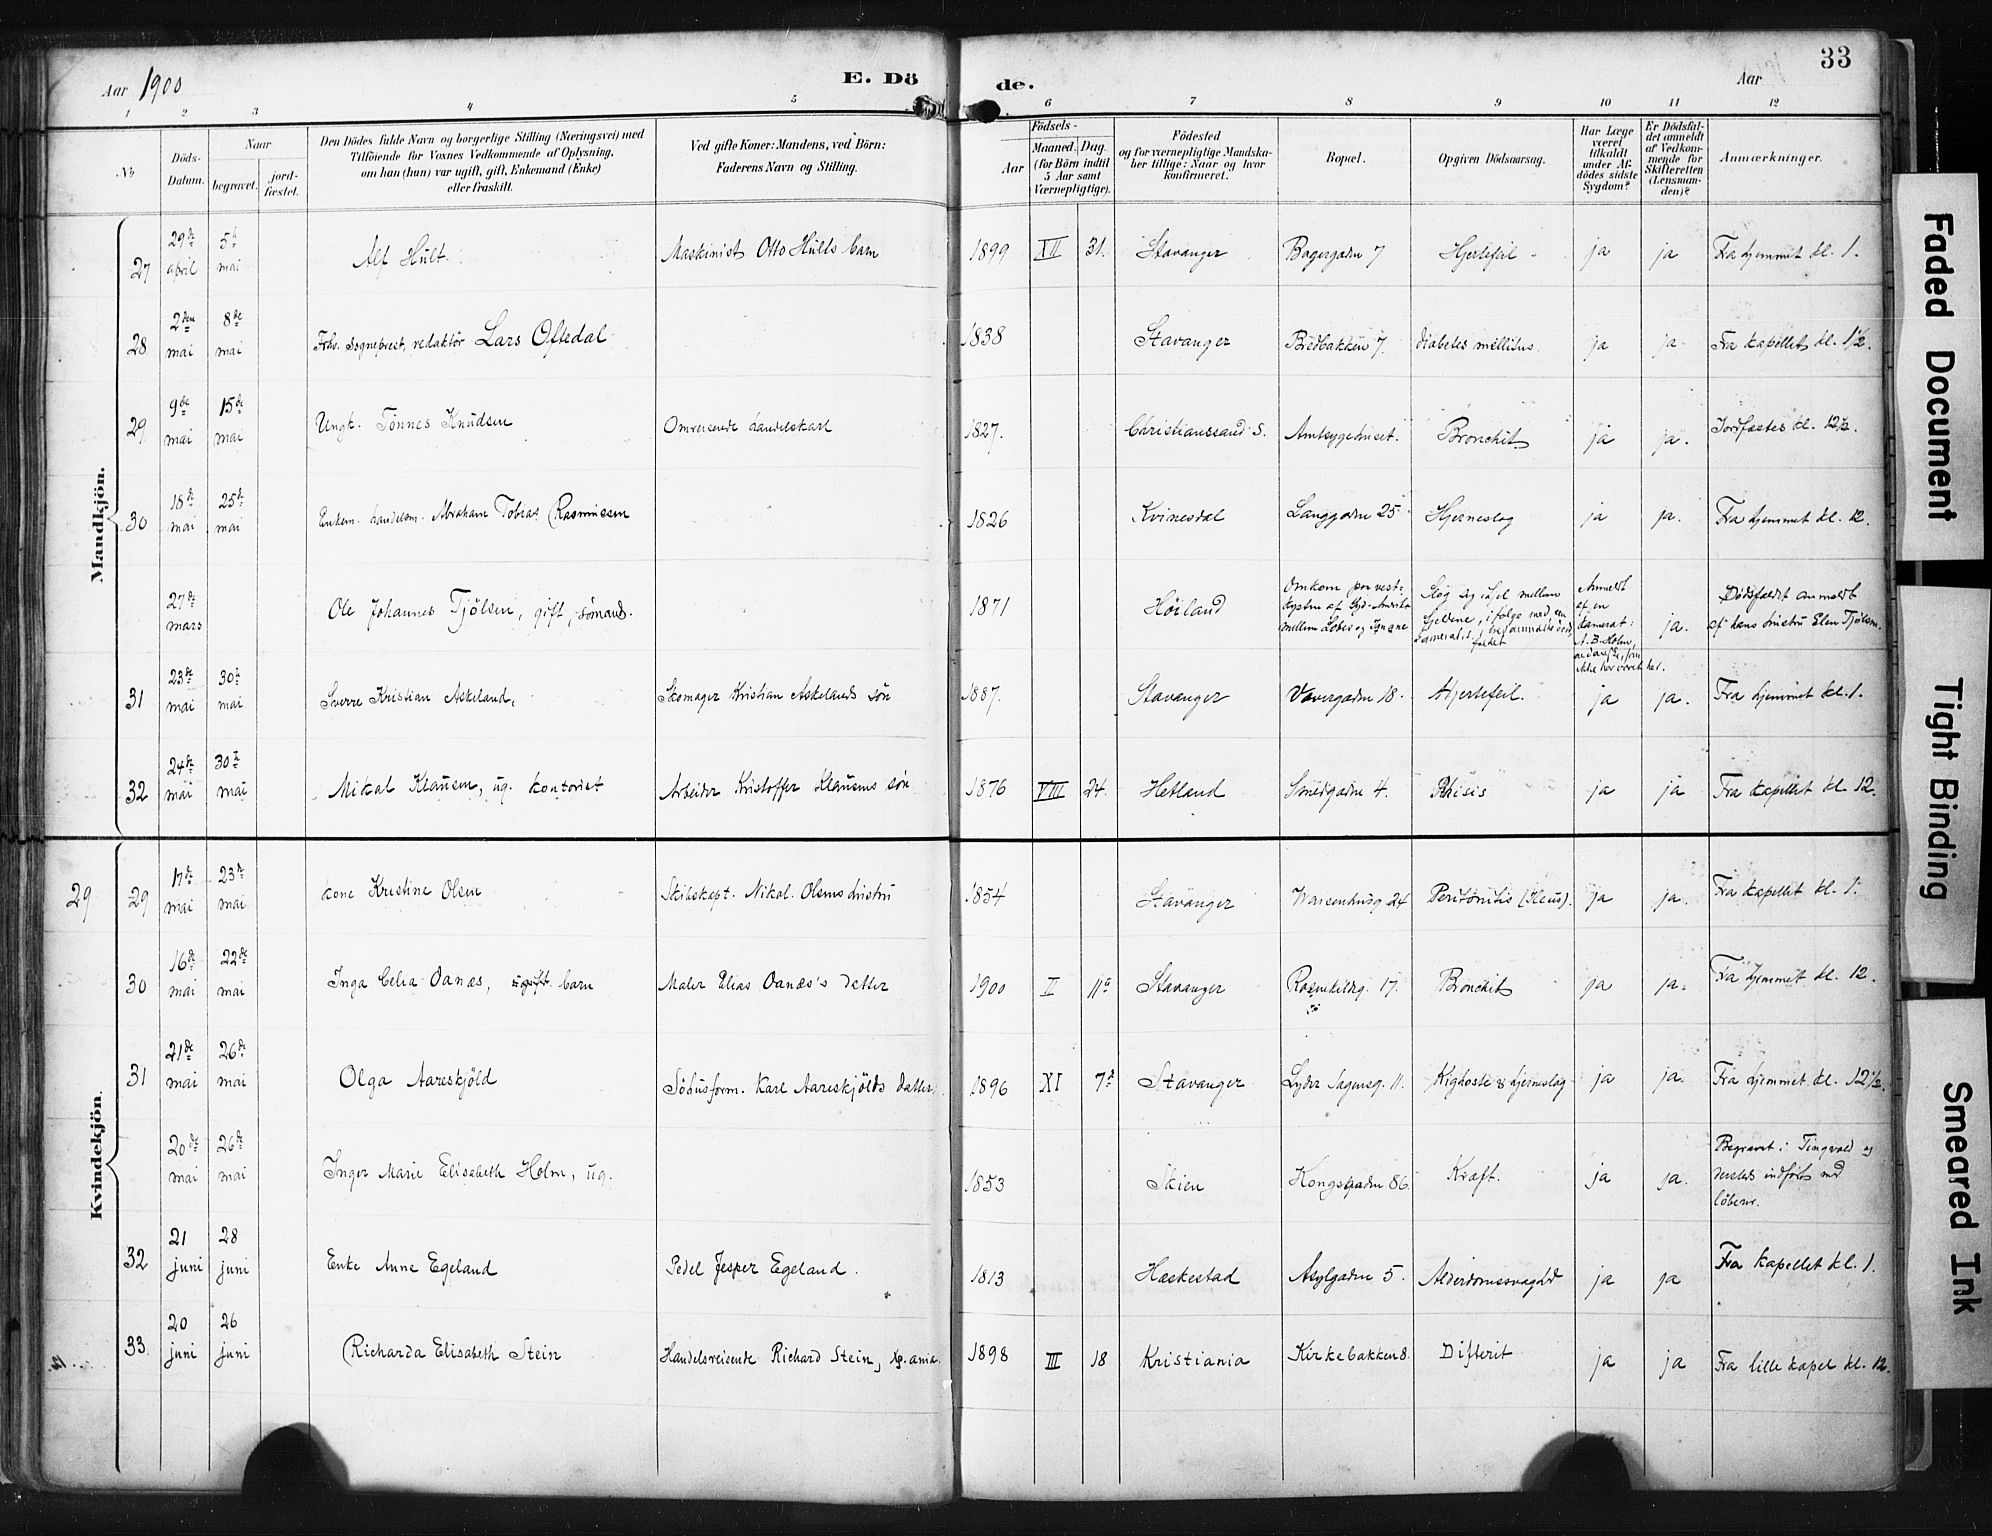 Aar 1900
E. Dö de.
Aar
33
1 2 3 4 5 6 7 8 9 10 11 12
No
Döds-Datum.
Naar
begravet.
jord-fæstet.
Den Dödes fulde Navn og borgerlige Stilling (Næringsvei) med
Tilföiende for Voxnes Vedkommende af Oplysning,
om han (hun) var ugift, gift, Enkemand (Enke)
eller fraskilt.
Ved gifte Koner: Mandens, ved Börn:
Faderens Navn og Stilling.
Födsels-
Aar
Maaned. Dag.
(for Börn indtil
5 Aar samt
Værnepligtige).
Födested
og for værnepligtige Mandska-
ber tillige: Naar og hvor
konfirmeret.
Bopæl.
Opgiven Dödsaarsag.
Har Læge
været
tilkaldt
under Af-
dödes sidste
Sygdom?
Er Dödsfal-
det anmeldt
af Vedkom-
mende for
Skifteretten
(Lensman-
den)?
Anmærkninger.
Mandkjön.
27 29de april 5te mai Alf Hult. Maskinist Otto Hults barn 1899 XII 31. Stavanger Bagergadn 7 Hjertefeil ja ja Fra hjemmet kl. 1.
28 2den mai 8de mai Fhv. sogneprest, redaktör Lars Oftedal 1838 Stavanger Bredbakken 7. diabetes mellitus ja ja Fra kapellet kl. 1½.
29 9de mai 15de mai Ungk. Tönnes Knudsen Omreisende handelskarl 1827. Christianssand S. Amtsygehuset. Bronchit ja ja. Jordfæstes kl. 12½.
30 18de mai 25de mai Enkem. handelsm. Abraham Tobias Rasmussen 1826 Kvinesdal Langgadn 25 Hjerneslag ja ja. Fra hjemmet kl. 12.
27de mars Ole Johannes Tjölsen, gift, sömand. 1871 Höiland Omkom paa vest-
kysten af Syd-Amerika
mellem Lobos og Iquique Slog sig ihjel mellem
, ifölge med en
kamerats
faldet Anmeldt
af en
kamerat:
A. B. Holm,
ikke har været her. ja. Dödsfaldet anmeldt
af hans hustru Elen Tjölsen.
31 23de mai 30te mai Sverre Kristian Askeland, Skomager Kristian Askelands sön 1887. Stavanger Vævergadn 18. Hjertefeil. ja ja. Fra hjemmet kl. 1.
32 24de mai 30te mai Mikal Klausen, ug. kontorist Arbeider Kristoffer Klausens sön 1876 VIII 24. Hetland Smedgadn 4. Phtisis ja ja Fra kapellet kl. 12.
Kvindekjön.
29 29 17de mai 23de mai kone Kristine Olsen Skibskapt. Nikol. Olsens hustru 1854 Stavanger Waisenhusg 24 Peritonitis (Ileus). ja ja. Fra kapellet kl. 1.
30 16de mai 22de mai Inga Celia Oanæs, ugift barn Maler Elias Oanæs's datter 1900 II 11te Stavanger Rosenkildg. 17. Bronchit ja ja. Fra hjemmet kl. 12.
31 21de mai 26de mai Olga Aareskjöld Söhusform. Karl Aareskjölds datter. 1896 XI 7de Stavanger Lyder Sagensg. 11. Kighoste & hjerneslag ja ja. Fra hjemmet kl. 12½.
20de mai 26de mai Inger Marie Elisabeth Holm, ug. 1853 Skien Kongsgadn 86. Kræft. ja ja. Begravet i Tingvold og
dersteds indförts med
löbenr.
32 21 juni 28 juni Enke Anne Egeland Pedel Jesper Egeland. 1813 Hæskestad Asylgadn 5. Alderdomssvaghed ja ja Fra kapellet kl. 1.
33. 20 juni 26 juni Richarda Elisabeth Stein Handelsreisende Richard Stein, Xp.ania. 1898 III 18 Kristiania Kirkebakken 8. Difterit ja ja Fra lille kapel kl. 12.
Faded Document
Tight Binding
Smeared Ink